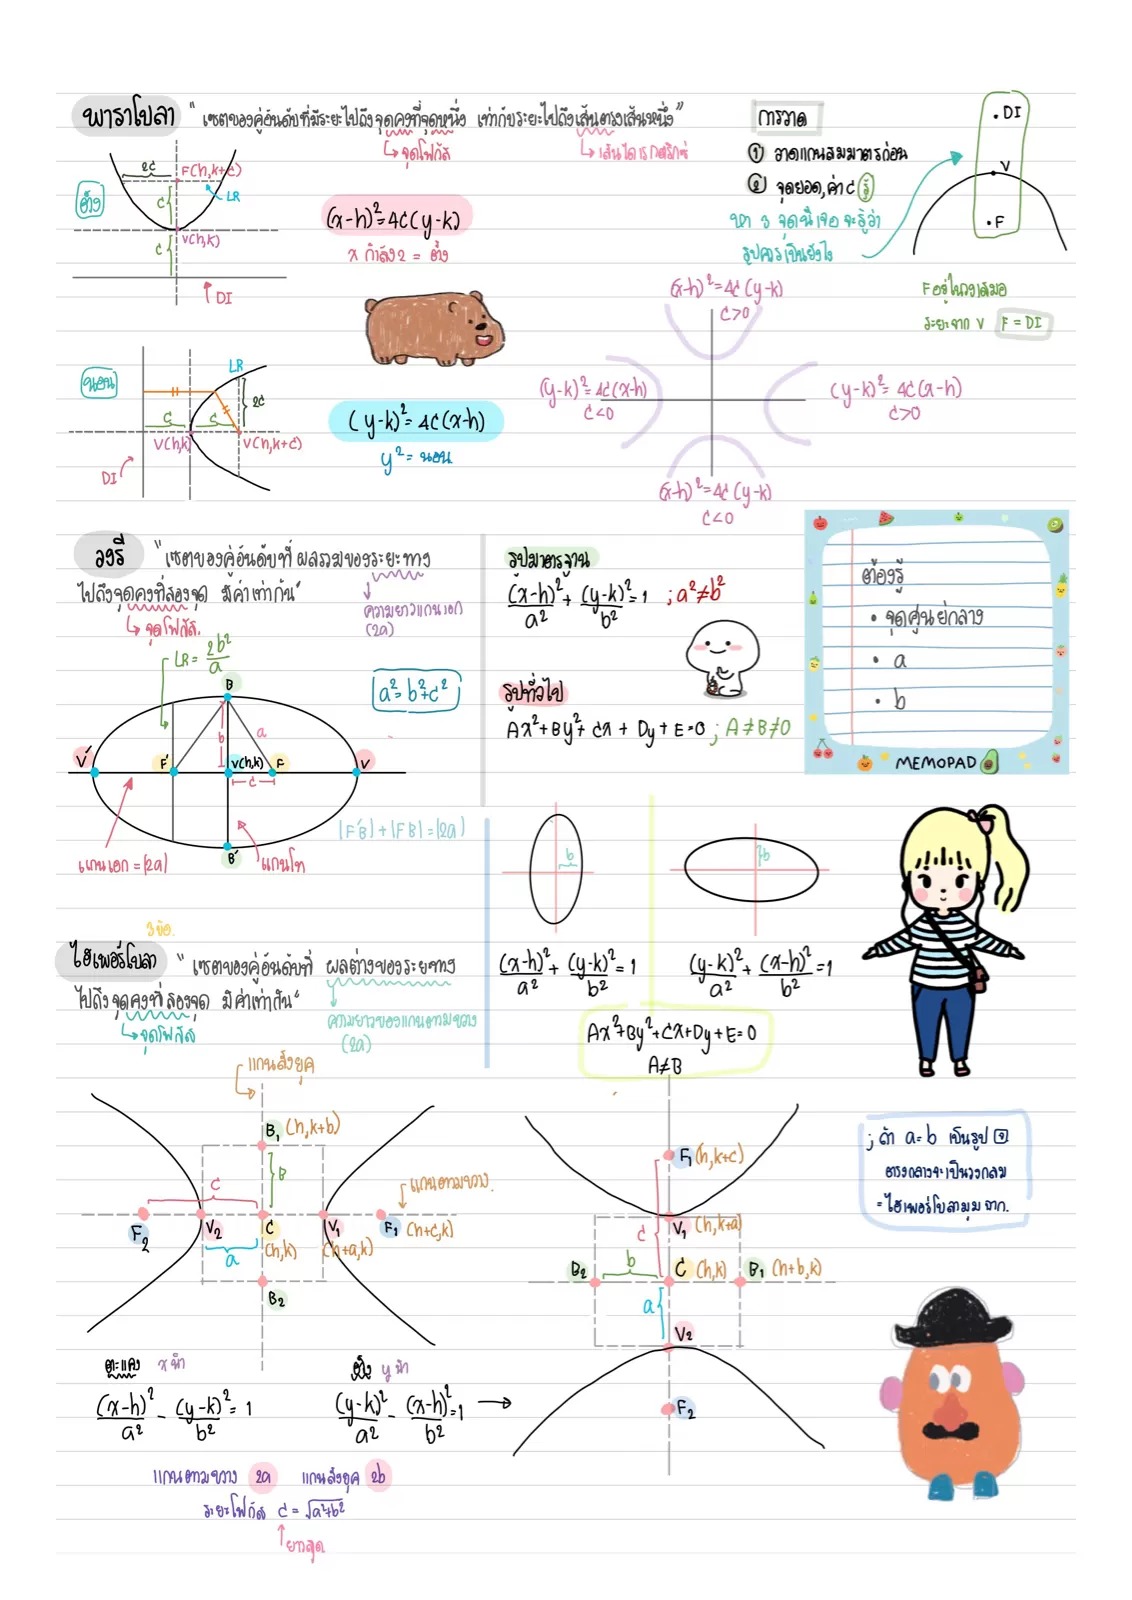 พาราโบลา "เซตของคู่อันดับที่มีระยะไปถึงจุดคงที่จุดหนึ่ง เท่ากับระยะไปถึงเส้นตรงเส้นหนึ่ง"
↳ จุดโฟกัส
↳ เส้นไดเรกตริกซ์
ตั้ง
2c
F(h,k+c)
LR
c
V(h,k)
c
DI
(x-h)²=4c(y-k)
x กำลัง2 = ตั้ง
การวาด
① วาดแกนสมมาตรก่อน
② จุดยอด, ค่า c รู้
หา 3 จุดนี้เจอ จะรู้ว่า
รูปควรเป็นยังไง
DI
V
F
F อยู่ในวงเสมอ
ระยะจาก V F = DI
นอน
LR
2c
c
c
V(h,k)
V(h,k+c)
DI
(y-k)²=4c(x-h)
y²= นอน
(x-h)²=4c(y-k)
c>0
(y-k)²=4c(x-h)
c<0
(y-k)²=4c(x-h)
c>0
(x-h)²=4c(y-k)
c<0
วงรี "เซตของคู่อันดับที่ ผลรวมของระยะทาง
ไปถึงจุดคงที่สองจุด มีค่าเท่ากัน"
↳ จุดโฟกัส.
ความยาวแกนเอก
(2a)
LR = 2b²/a
a²=b²+c²
B
b
a
V'
F'
V(h,k)
F
V
c
B'
แกนเอก = |2a|
แกนโท
|F'B|+|FB|=|2a|
รูปมาตรฐาน
(x-h)²/a² + (y-k)²/b² = 1 ; a²≠b²
รูปทั่วไป
Ax²+By²+Cx+Dy+E=0 ; A≠B≠0
ต้องรู้
• จุดศูนย์กลาง
• a
• b
MEMOPAD
b
b
(x-h)²/a² + (y-k)²/b² = 1
(y-k)²/a² + (x-h)²/b² = 1
Ax²+By²+Cx+Dy+E=0
A≠B
3ข้อ.
ไฮเพอร์โบลา "เซตของคู่อันดับที่ ผลต่างของระยะทาง
ไปถึงจุดคงที่สองจุด มีค่าเท่ากัน"
↳ จุดโฟกัส
ความยาวของแกนตามขวาง
(2a)
แกนสังยุค
B₁ (h,k+b)
B
c
แกนตามขวาง
F₂
V₂
C
V₁
F₁ (h+c,k)
a
(h,k)
(h+a,k)
B₂
F₁ (h,k+c)
c
V₁ (h,k+a)
B₂
b
C (h,k)
B₁ (h+b,k)
a
V₂
F₂
; ถ้า a=b เป็นรูป □
ตรงกลางจะเป็นวงกลม
=ไฮเพอร์โบลามุมฉาก.
ตะแคง x นำ
(x-h)²/a² - (y-k)²/b² = 1
ตั้ง y นำ
(y-k)²/a² - (x-h)²/b² = 1
แกนตามขวาง 2a แกนสังยุค 2b
ระยะโฟกัส c = √a²+b²
ยาวสุด